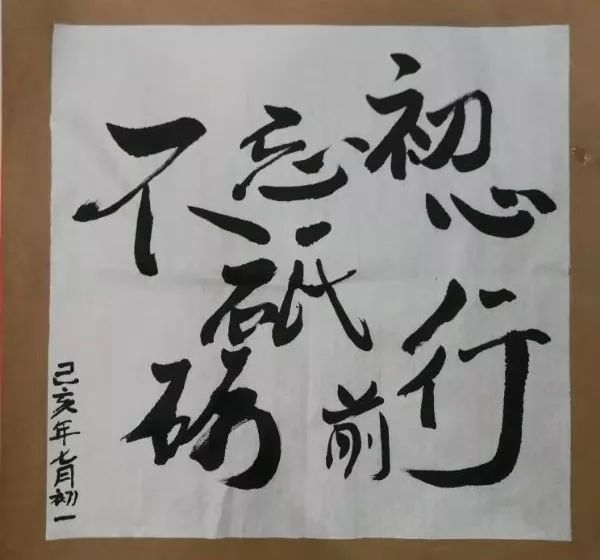 不忘初心
砥砺前行
己亥年七月初一